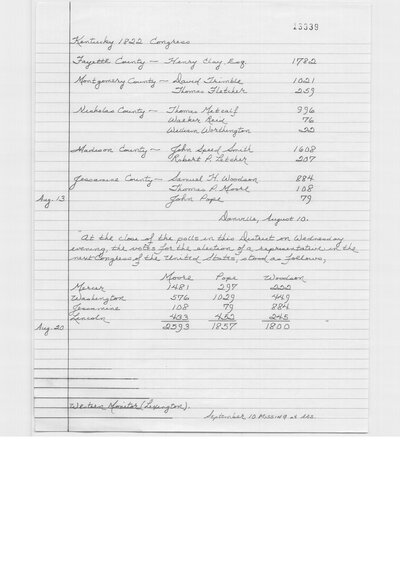 13339
Kentucky 1822 Congress
Fayette County — Henry Clay Esq 1782
Montgomery County — David Trimble 1021
Thomas Fletcher 259
Nicholas County — Thomas Metcalf 996
Walker Reid 76
William Worthington 22
Madison County — John Speed Smith 1608
Robert P. Letcher 207
Jessamine County — Samuel H. Woodson 884
Thomas P. Moore 108
Aug. 13 John Pope 79
Danville, August 10.
"At the close of the polls in this District on Wednesday
evening, the votes for the election of a representative in the
next Congress of the United States, stood as follows,
Moore Pope Woodson
Mercer 1481 297 222
Washington 576 1029 449
Jessamine 108 79 884
Lincoln 433 452 245
Aug. 20 2593 1857 1800
Western Monitor (Lexington).
September 10 Missing at